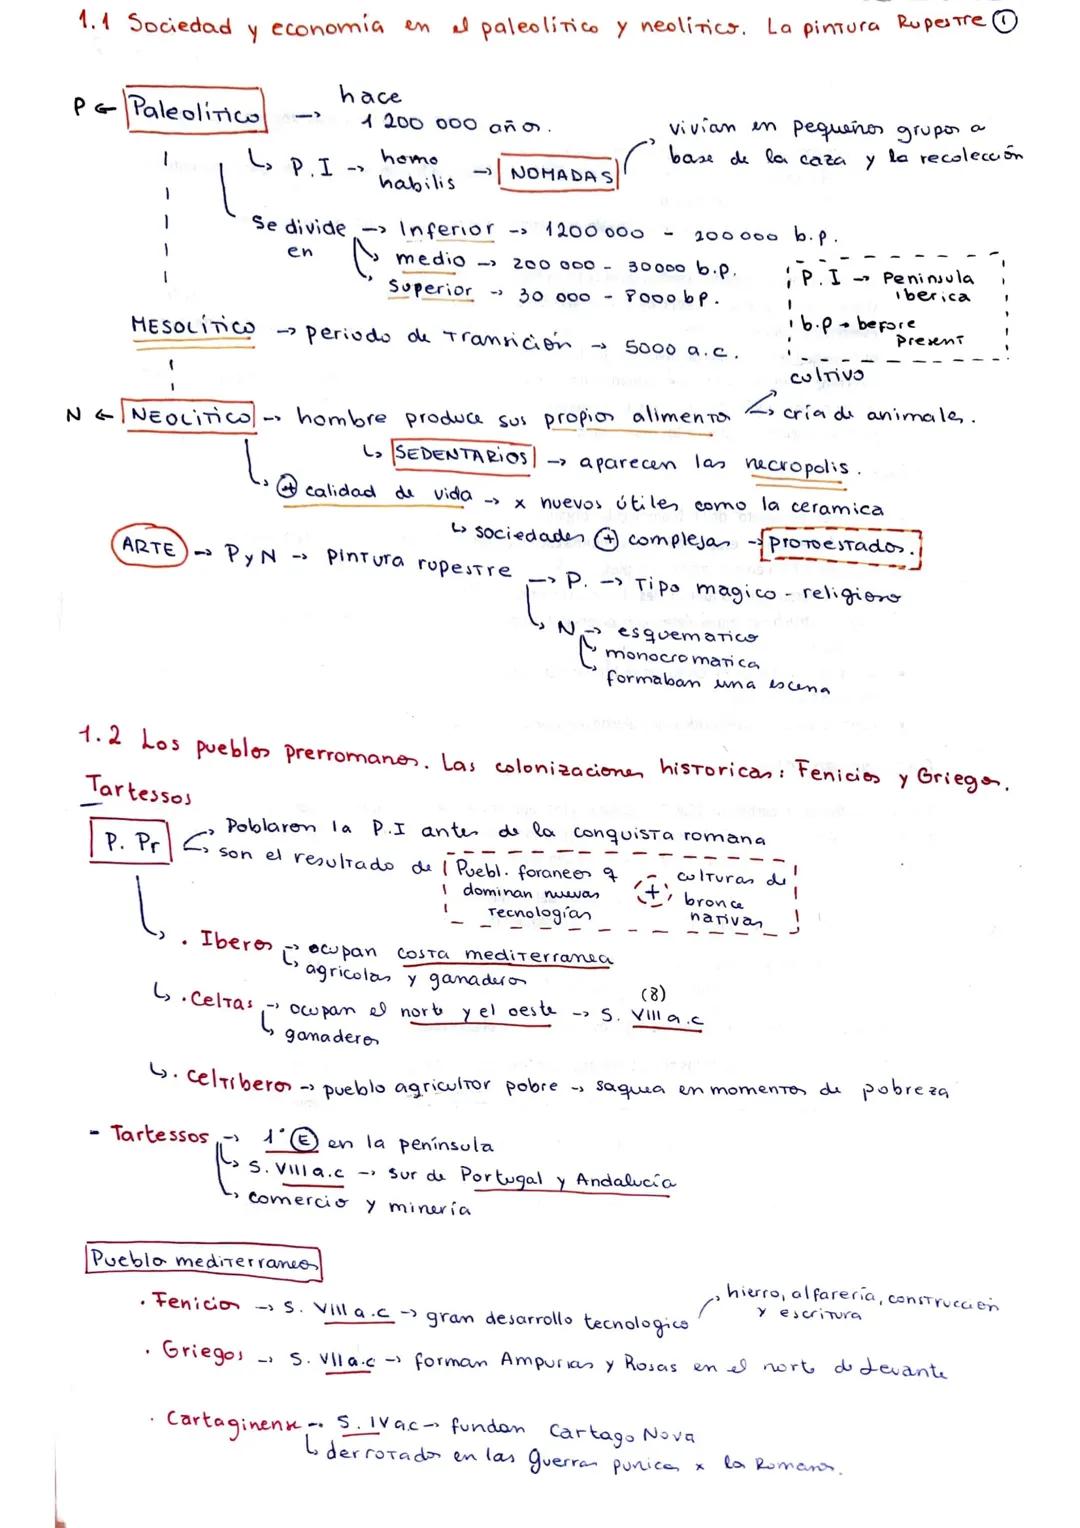 1.1 Sociedad y economía en el paleolítico y neolítico. La pintura Rupestre ①
P ← Paleolítico → hace
1 200 000 años.
↳ P.I → homo
habilis → NOMADAS
vivían en pequeños grupos a
base de la caza y la recolección
Se divide
en
→ Inferior → 1200 000 - 200 000 b.p.
medio → 200 000 - 30000 b.p.
Superior → 30 000 - 8000 bp.
P.I → Peninsula
iberica
b.p → before
present
MESOLÍTICO → periodo de transición → 5000 a.c.
N ← NEOLITICO → hombre produce sus propios alimentos
cultivo
cría de animales.
↳ SEDENTARIOS → aparecen las necropolis.
↳ ⊕ calidad de vida → x nuevos útiles como la ceramica
↳ sociedades ⊕ complejas → protoestados.
ARTE → P y N → pintura rupestre → P. → Tipo magico - religioso
↳ N → esquematico
monocromatica
formaban una escena
1.2 Los pueblos prerromanos. Las colonizaciones historicas: Fenicios y Griegos.
Tartessos
P. Pr
Poblaron la P.I antes de la conquista romana
son el resultado de
Puebl. foraneos q
dominan nuevas
tecnologías
+
culturas de
bronce
nativas
· Iberos → ocupan costa mediterranea
↳ agricolas y ganaderos
↳ · Celtas → ocupan el norte y el oeste → S. VIII a.c
(8)
↳ ganaderos
↳ · Celtiberos → pueblo agricultor pobre → saquea en momentos de pobreza
- Tartessos → 1º Ⓔ en la península
↳ S. VIII a.c → sur de Portugal y Andalucía
↳ comercio y minería
Pueblos mediterraneos
· Fenicios → S. VIII a.c → gran desarrollo tecnologico
hierro, alfarería, construcción
y escritura
· Griegos → S. VII a.c → forman Ampurias y Rosas en el norte de Levante
· Cartaginense → S. IV a.c → fundan Cartago Nova
↳ derrotados en las guerras punicas x los Romanos.